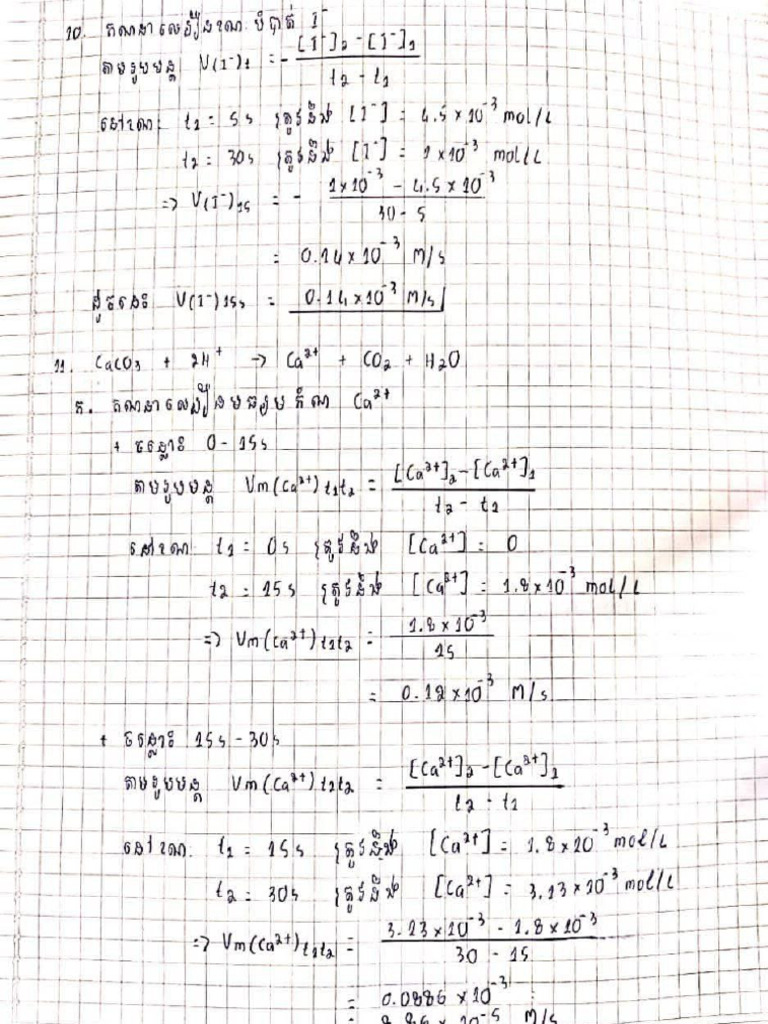 10. គណនាល្បឿនខណៈបំបាត់ I⁻
តាមរូបមន្ត V(I⁻)₁ = - [I⁻]₂ - [I⁻]₁ / t₂ - t₁
នៅខណៈ t₁ = 5s ត្រូវនឹង [I⁻] = 4.5 × 10⁻³ mol/L
t₂ = 30s ត្រូវនឹង [I⁻] = 1 × 10⁻³ mol/L
=> V(I⁻)₁₅ = - 1×10⁻³ - 4.5 × 10⁻³ / 30 - 5
= 0.14 × 10⁻³ M/s
ដូចនេះ V(I⁻)₁₅ₛ = 0.14 × 10⁻³ M/s
11. CaCO₃ + 2H⁺ -> Ca²⁺ + CO₂ + H₂O
ក. គណនាល្បឿនមធ្យមកំណ Ca²⁺
+ ចន្លោះ 0 - 15s
តាមរូបមន្ត Vm(Ca²⁺)t₁t₂ = [Ca²⁺]₂ - [Ca²⁺]₁ / t₂ - t₁
នៅខណៈ t₁ = 0s ត្រូវនឹង [Ca²⁺] = 0
t₂ = 15s ត្រូវនឹង [Ca²⁺] = 1.8 × 10⁻³ mol/L
=> Vm(Ca²⁺)t₁t₂ = 1.8 × 10⁻³ / 15
= 0.12 × 10⁻³ M/s
+ ចន្លោះ 15s - 30s
តាមរូបមន្ត Vm(Ca²⁺)t₁t₂ = [Ca²⁺]₂ - [Ca²⁺]₁ / t₂ - t₁
នៅខណៈ t₁ = 15s ត្រូវនឹង [Ca²⁺] = 1.8 × 10⁻³ mol/L
t₂ = 30s ត្រូវនឹង [Ca²⁺] = 3.13 × 10⁻³ mol/L
=> Vm(Ca²⁺)t₁t₂ = 3.13 × 10⁻³ - 1.8 × 10⁻³ / 30 - 15
= 0.0886 × 10⁻³
= 8.86 × 10⁻⁵ M/s